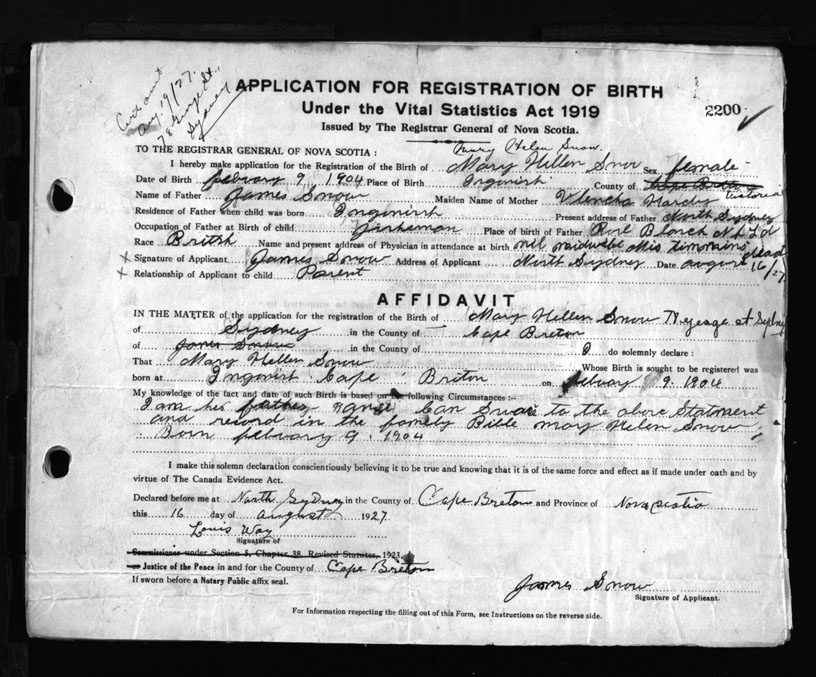 Aug 19/27.
78 George St.,
Sydney
APPLICATION FOR REGISTRATION OF BIRTH
Under the Vital Statistics Act 1919
2200
Issued by The Registrar General of Nova Scotia.
Mary Helen Snow.
TO THE REGISTRAR GENERAL OF NOVA SCOTIA:
I hereby make application for the Registration of the Birth of Mary Hellen Snow Sex female
Date of Birth febuary 9, 1904 Place of Birth Ingonish County of Cape Breton Victoria
Name of Father James Snow Maiden Name of Mother Hardy
Residence of Father when child was born Ingonish Present address of Father North Sydney
Occupation of Father at Birth of child fisheman Place of birth of Father Blanch N.F.L.d
Race British Name and present address of Physician in attendance at birth nil midwife Mis Timmains dead
x Signature of Applicant James Snow Address of Applicant North Sydney Date august 16/27
x Relationship of Applicant to child Parent
AFFIDAVIT
IN THE MATTER of the application for the registration of the Birth of Mary Hellen Snow at Sydney
of Sydney in the County of Cape Breton
of James Snow in the County of I do solemnly declare:
That Mary Hellen Snow Whose Birth is sought to be registered was
born at Ingonish Cape Briton on febuary 9. 1904
My knowledge of the fact and date of such Birth is based on the following Circumstances:-
I am her father and Can Swair to the above Statement
and record in the family Bible mary Helen Snow
Born febuary 9. 1904
I make this solemn declaration conscientiously believing it to be true and knowing that it is of the same force and effect as if made under oath and by
virtue of The Canada Evidence Act.
Declared before me at North Sydney in the County of Cape Breton and Province of Nova Scotia
this 16 day of August 1927.
Louis Way
Signature of
Commissioner under Section 5, Chapter 38, Revised Statutes, 1923.
or Justice of the Peace in and for the County of Cape Breton
If sworn before a Notary Public affix seal.
James Snow
Signature of Applicant.
For Information respecting the filling out of this Form, see Instructions on the reverse side.